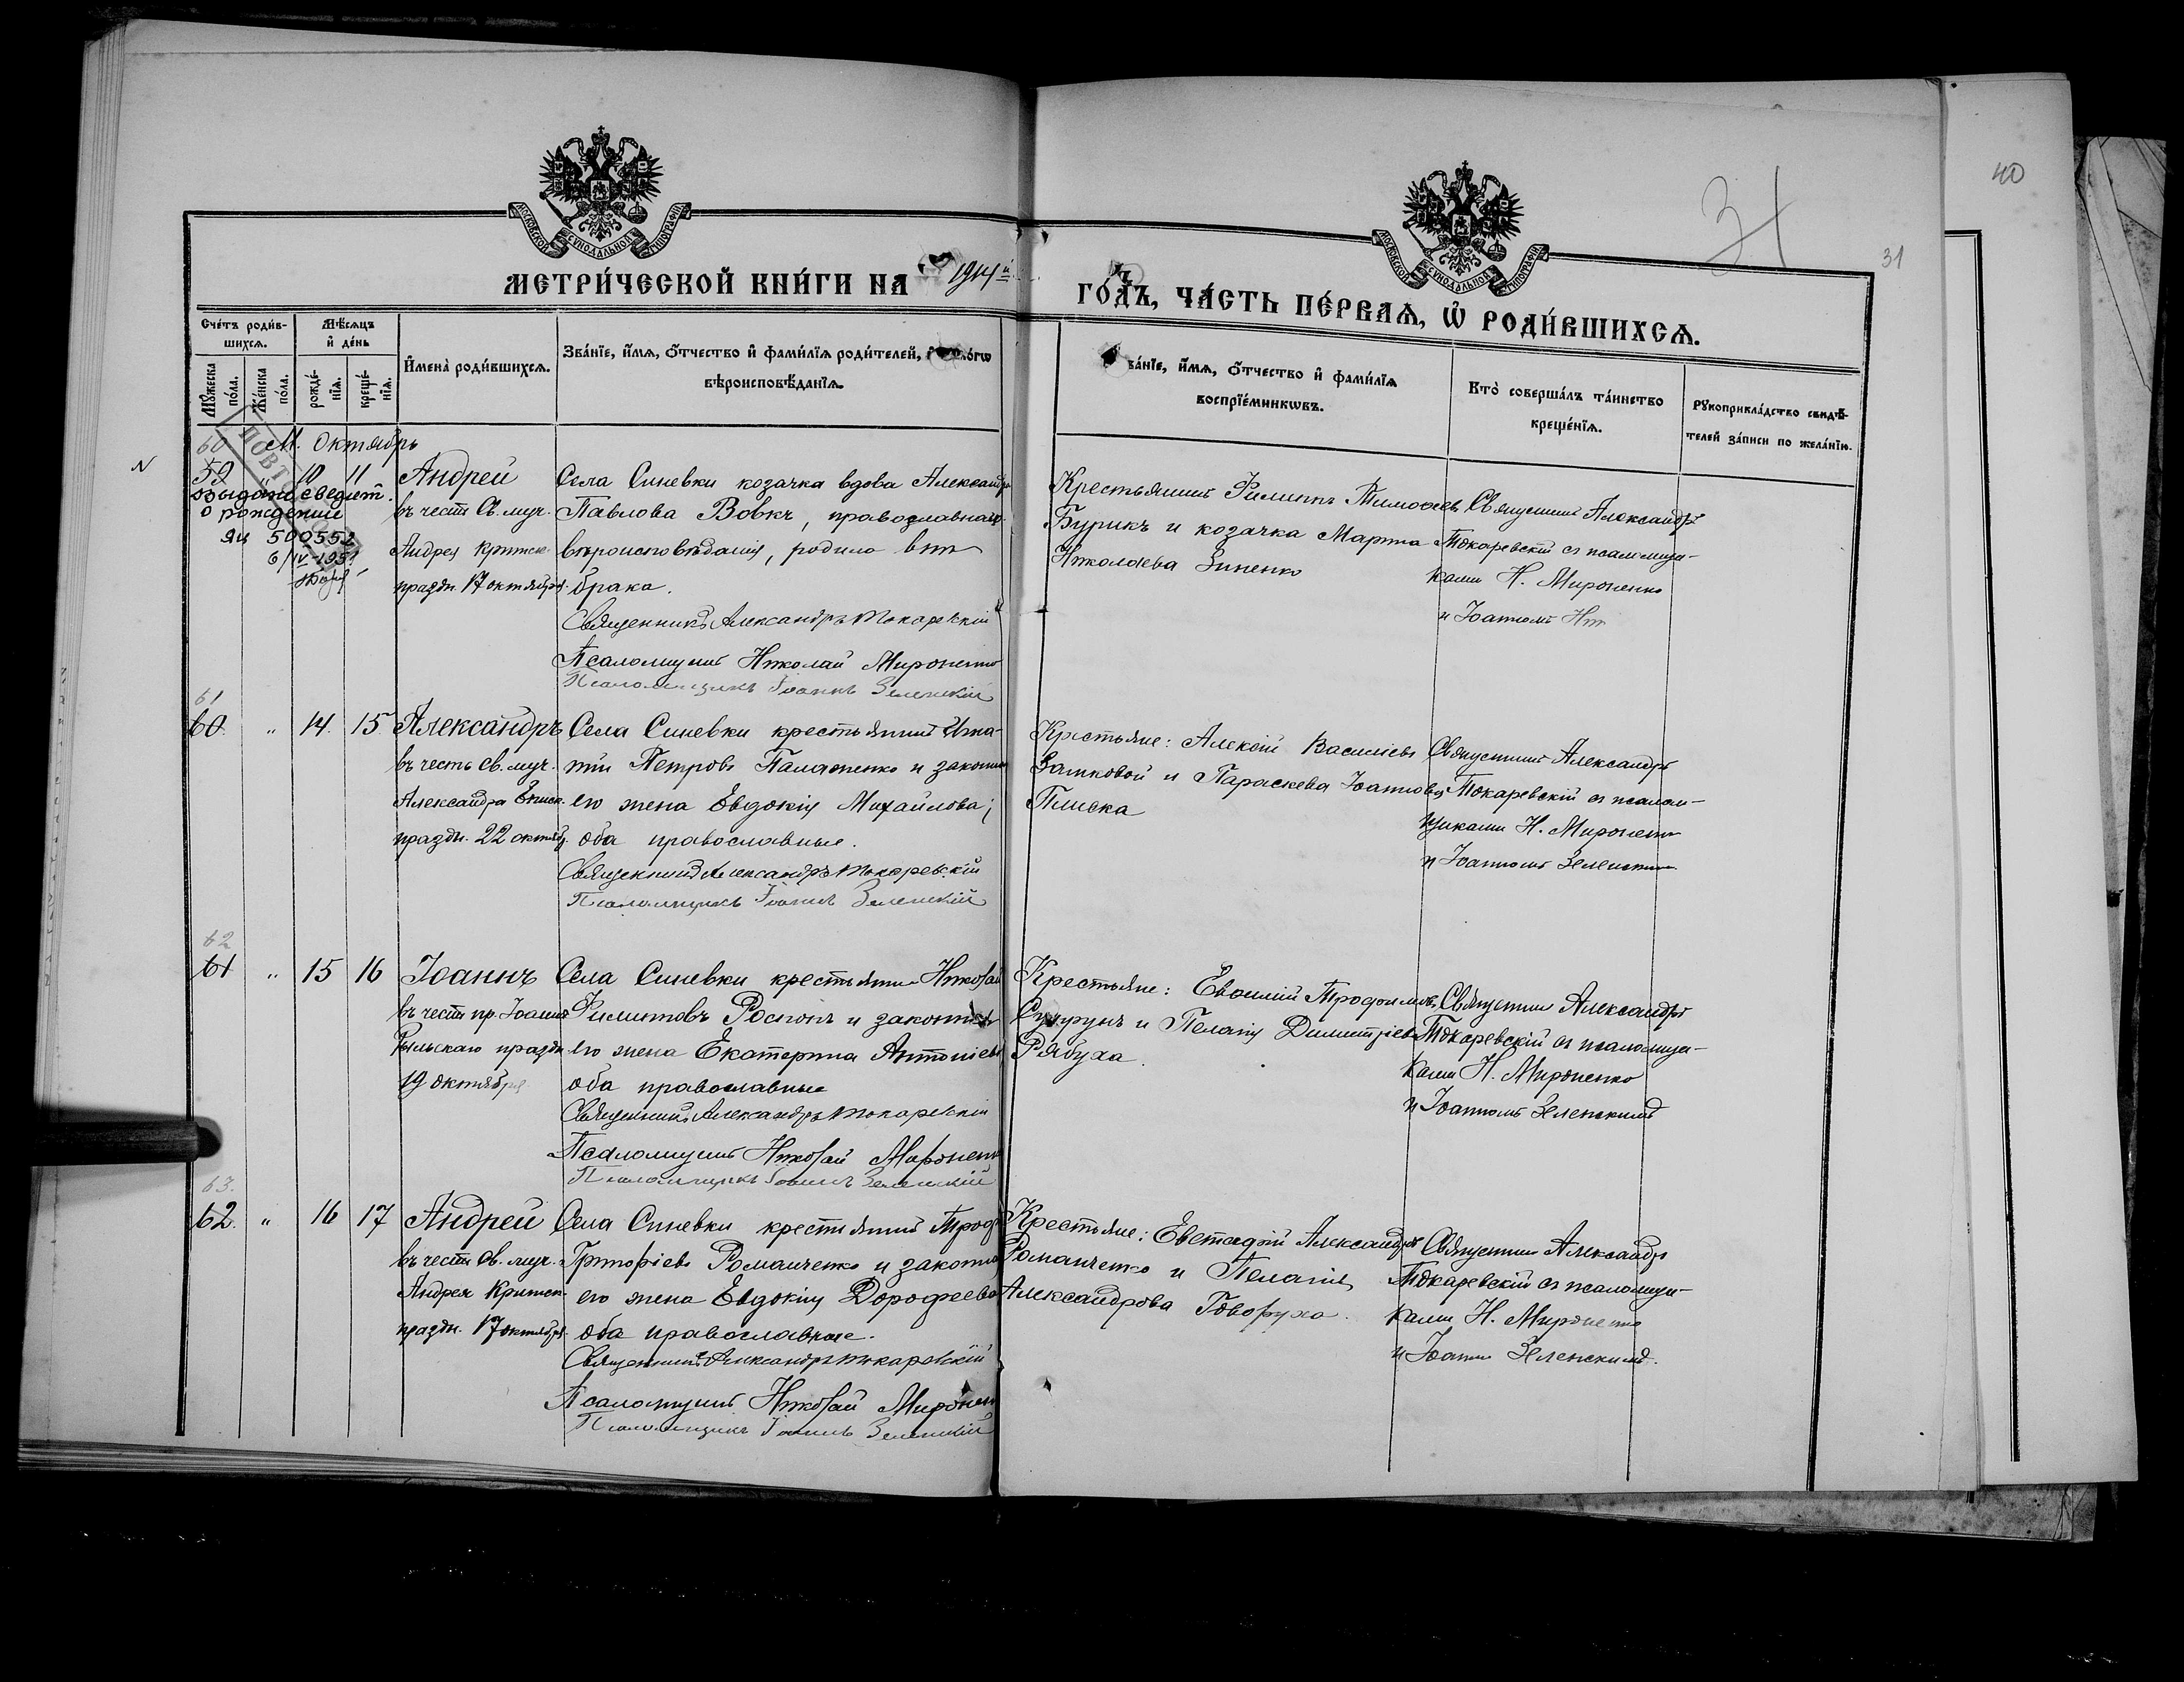 40
31
31
МОСКОВСКОЙ СѴНОДАЛЬНОЙ ТИПОГРАФІИ
МОСКОВСКОЙ СѴНОДАЛЬНОЙ ТИПОГРАФІИ
МЕТРИ́ЧЕСКОЙ КНИ́ГИ НА 1914й
ГО́ДЪ, ЧА́СТЬ ПЕ́РВАЯ, Ѽ РОДИ́ВШИХСЯ.
Сче́тъ роди́в-
шихся.
Мѣ́сяцъ
и҆ де́нь
Му́жеска по́ла.
Же́нска по́ла.
рожде́-
нїя.
креще́-
нїя.
И҆мена̀ роди́вшихся.
Зва́нїе, и҆́мя, о҆́тчество и҆ фами́лїя роди́телей,
вѣроисповѣ́данїя.
ва́нїе, и҆́мя, о҆́тчество и҆ фами́лїя
воспрїе́мникѡвъ.
Кто̀ соверша́лъ та́инство
креще́нїя.
Рꙋкоприкла́дство свидѣ́-
телей за́писи по жела́нїю.
60 М. Октябрь
59 " 10 11 Андрей
выдано свидет.
о рождении
ЯЦ 500552
6/IV-195
ПОВТОРНО
въ честь Св. муч.
Андрея Критск.
праздн. 17 октября.
Села Синевки козачка вдова Александра
Павлова Вовкъ, православнаго
вѣроисповѣданія, родила внѣ
брака.
Священникъ Александръ Токаревскій
Псаломщикъ Николай Мироненко
Псаломщикъ Іоаннъ Зеленскій
Крестьянинъ Филиппъ Тимофеевъ
Бурикъ и козачка Марѳа
Николаева Зиненко
Священникъ Александръ
Токаревскій съ псаломщи-
ками Н. Мироненко
и Іоанномъ
61
60 " 14. 15. Александръ
въ честь св. муч.
Александра Еписк.
праздн. 22 октябр.
Села Синевки крестьянинъ Игна-
тій Петровъ Паламенко и законная
его жена Евдокія Михайлова;
оба православные.
Священникъ Александръ Токаревскій
Псаломщикъ Іоаннъ Зеленскій
Крестьяне: Алексій Васильевъ
Замковой и Параскева Іоаннова
Плиска
Священникъ Александръ
Токаревскій съ псалом-
щиками Н. Мироненко
и Іоанномъ Зеленскимъ
62
61 " 15 16 Іоаннъ
въ честь пр. Іоанна
Рыльскаго праздн.
19 октября
Села Синевки крестьянинъ Николай
Филипповъ и законная
его жена Екатерина Антоніева
оба православные
Священникъ Александръ Токаревскій
Псаломщикъ Николай Мироненко
Псаломщикъ Іоаннъ Зеленскій
Крестьяне: Евѳимій Трофимовъ
Супрунъ и Пелагія Димитріева
Рябуха.
Священникъ Александръ
Токаревскій съ псаломщи-
ками Н. Мироненко
и Іоанномъ Зеленскимъ
63.
62. " 16 17 Андрей
въ честь Св. муч.
Андрея Критск.
праздн. 17 октября.
Села Синевки крестьянинъ Троф
Григоріевъ Романченко и законная
его жена Евдокія Дорофеева
оба православные.
Священникъ Александръ Токаревскій
Псаломщикъ Николай Мироненко
Псаломщикъ Іоаннъ Зеленскій
Крестьяне: Евстафій Александровъ
Романченко и Пелагія
Александрова Говоруха.
Священникъ Александръ
Токаревскій съ псаломщи-
ками Н. Мироненко
и Іоанномъ Зеленскимъ.